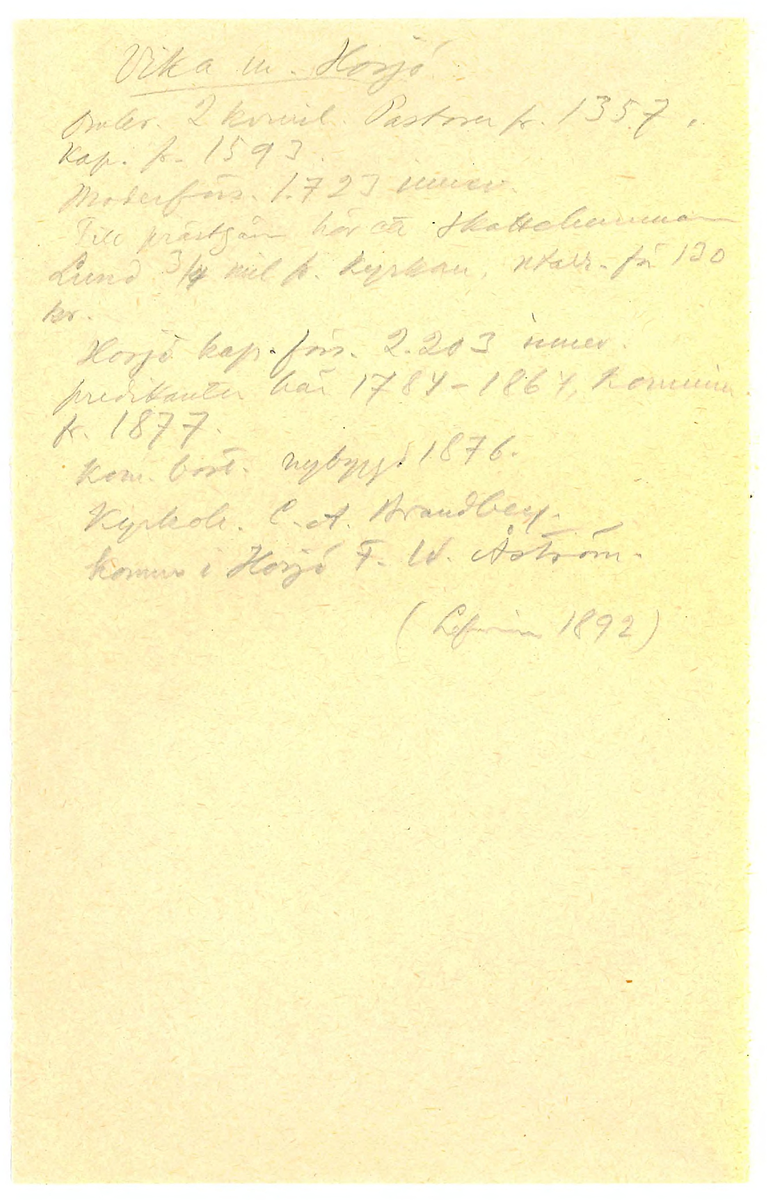 Vika m. Hosjö
2 kv.mil. Pastorer fr. 1357,
Kap. fr. 1593.
Moderförs. 1.723 innev.
Till prästgån hör ett Skattehemman
Lund 3/4 mil fr. Kyrkan, utarr. för 130
kr.
Hosjö kap. förs. 2.203 innev.
predikanter här 1784-1864, Kommin.
fr. 1877.
Kom. bost. nybygd 1876.
Kyrkoh. C. A. Brandberg.
Komm. i Hosjö F. W. Åström.
( 1892)